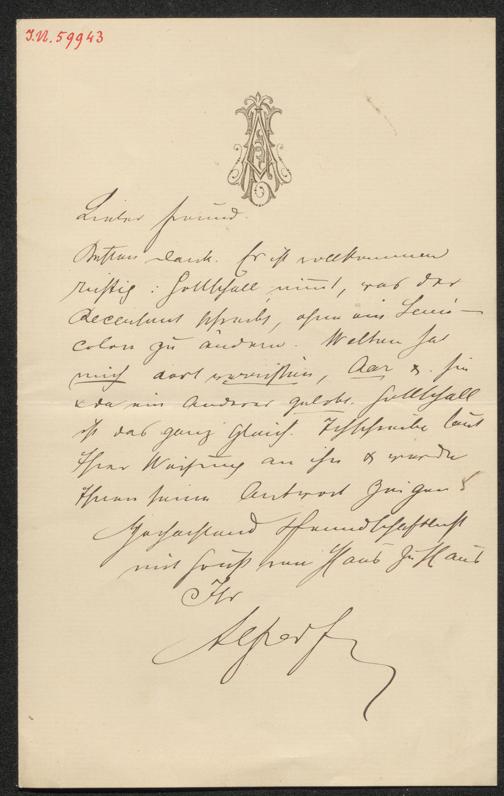 I.N. 59943
Lieber Freund.
Besten Dank. Er ist vollkommen
richtig: Gottschall nimmt, was der
Recensent schreibt, ohne ein Semi-
colon zu ändern. Welten hat
mich dort verrissen, &
ein Anderer gelobt. Gottschall
ist das ganz gleich. Ich schreibe laut
Ihrer Weisung an ihn & werde
Ihnen seine Antwort zeigen.
Hochachtend & freundschaftlichst
mit Gruß von Haus zu Haus
Ihr